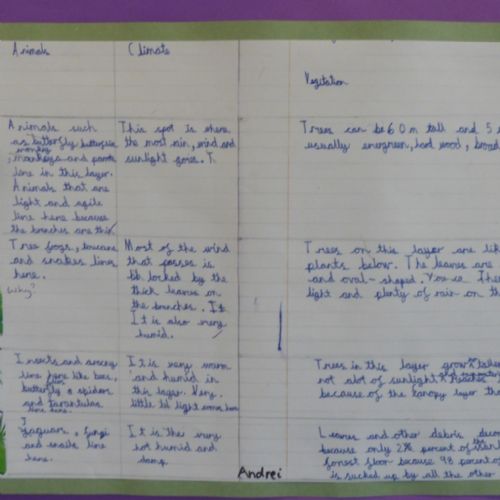 Animals
Climate
Vegetation
Animals such
as butterfly butterflies
monkey
, monkeys and parrots
live in this layer.
Animals that are
light and agile
live here because
the branches are thin.
This spot is where
the most rain, wind and
sunlight goes. T
Trees can be 60 m tall and 5
usually evergreen, hard wood, broad
Tree frogs, toucans
and snakes lives
here.
why?
Most of the wind
that passes is
blocked by the
thick leaves on
the branches. It
It is also very
humid.
Trees on this layer are
plants below. The leaves are
and oval-shaped.
light and plenty of rain on
Insects and
live here like bees,
butterfly
& spiders
and tarantulas
live here.
It is very warm
and humid in
this layer. Very
little light comes here
Trees in this layer grow
not alot of sunlight reaches
because of the canopy layer
Jaguar, fungi
and snails live
here.
It is the very
hot humid and
damp.
Leaves and other debris
because only 2% percent of
forest floor because 98 percent of
is sucked up by all the other
Andrei